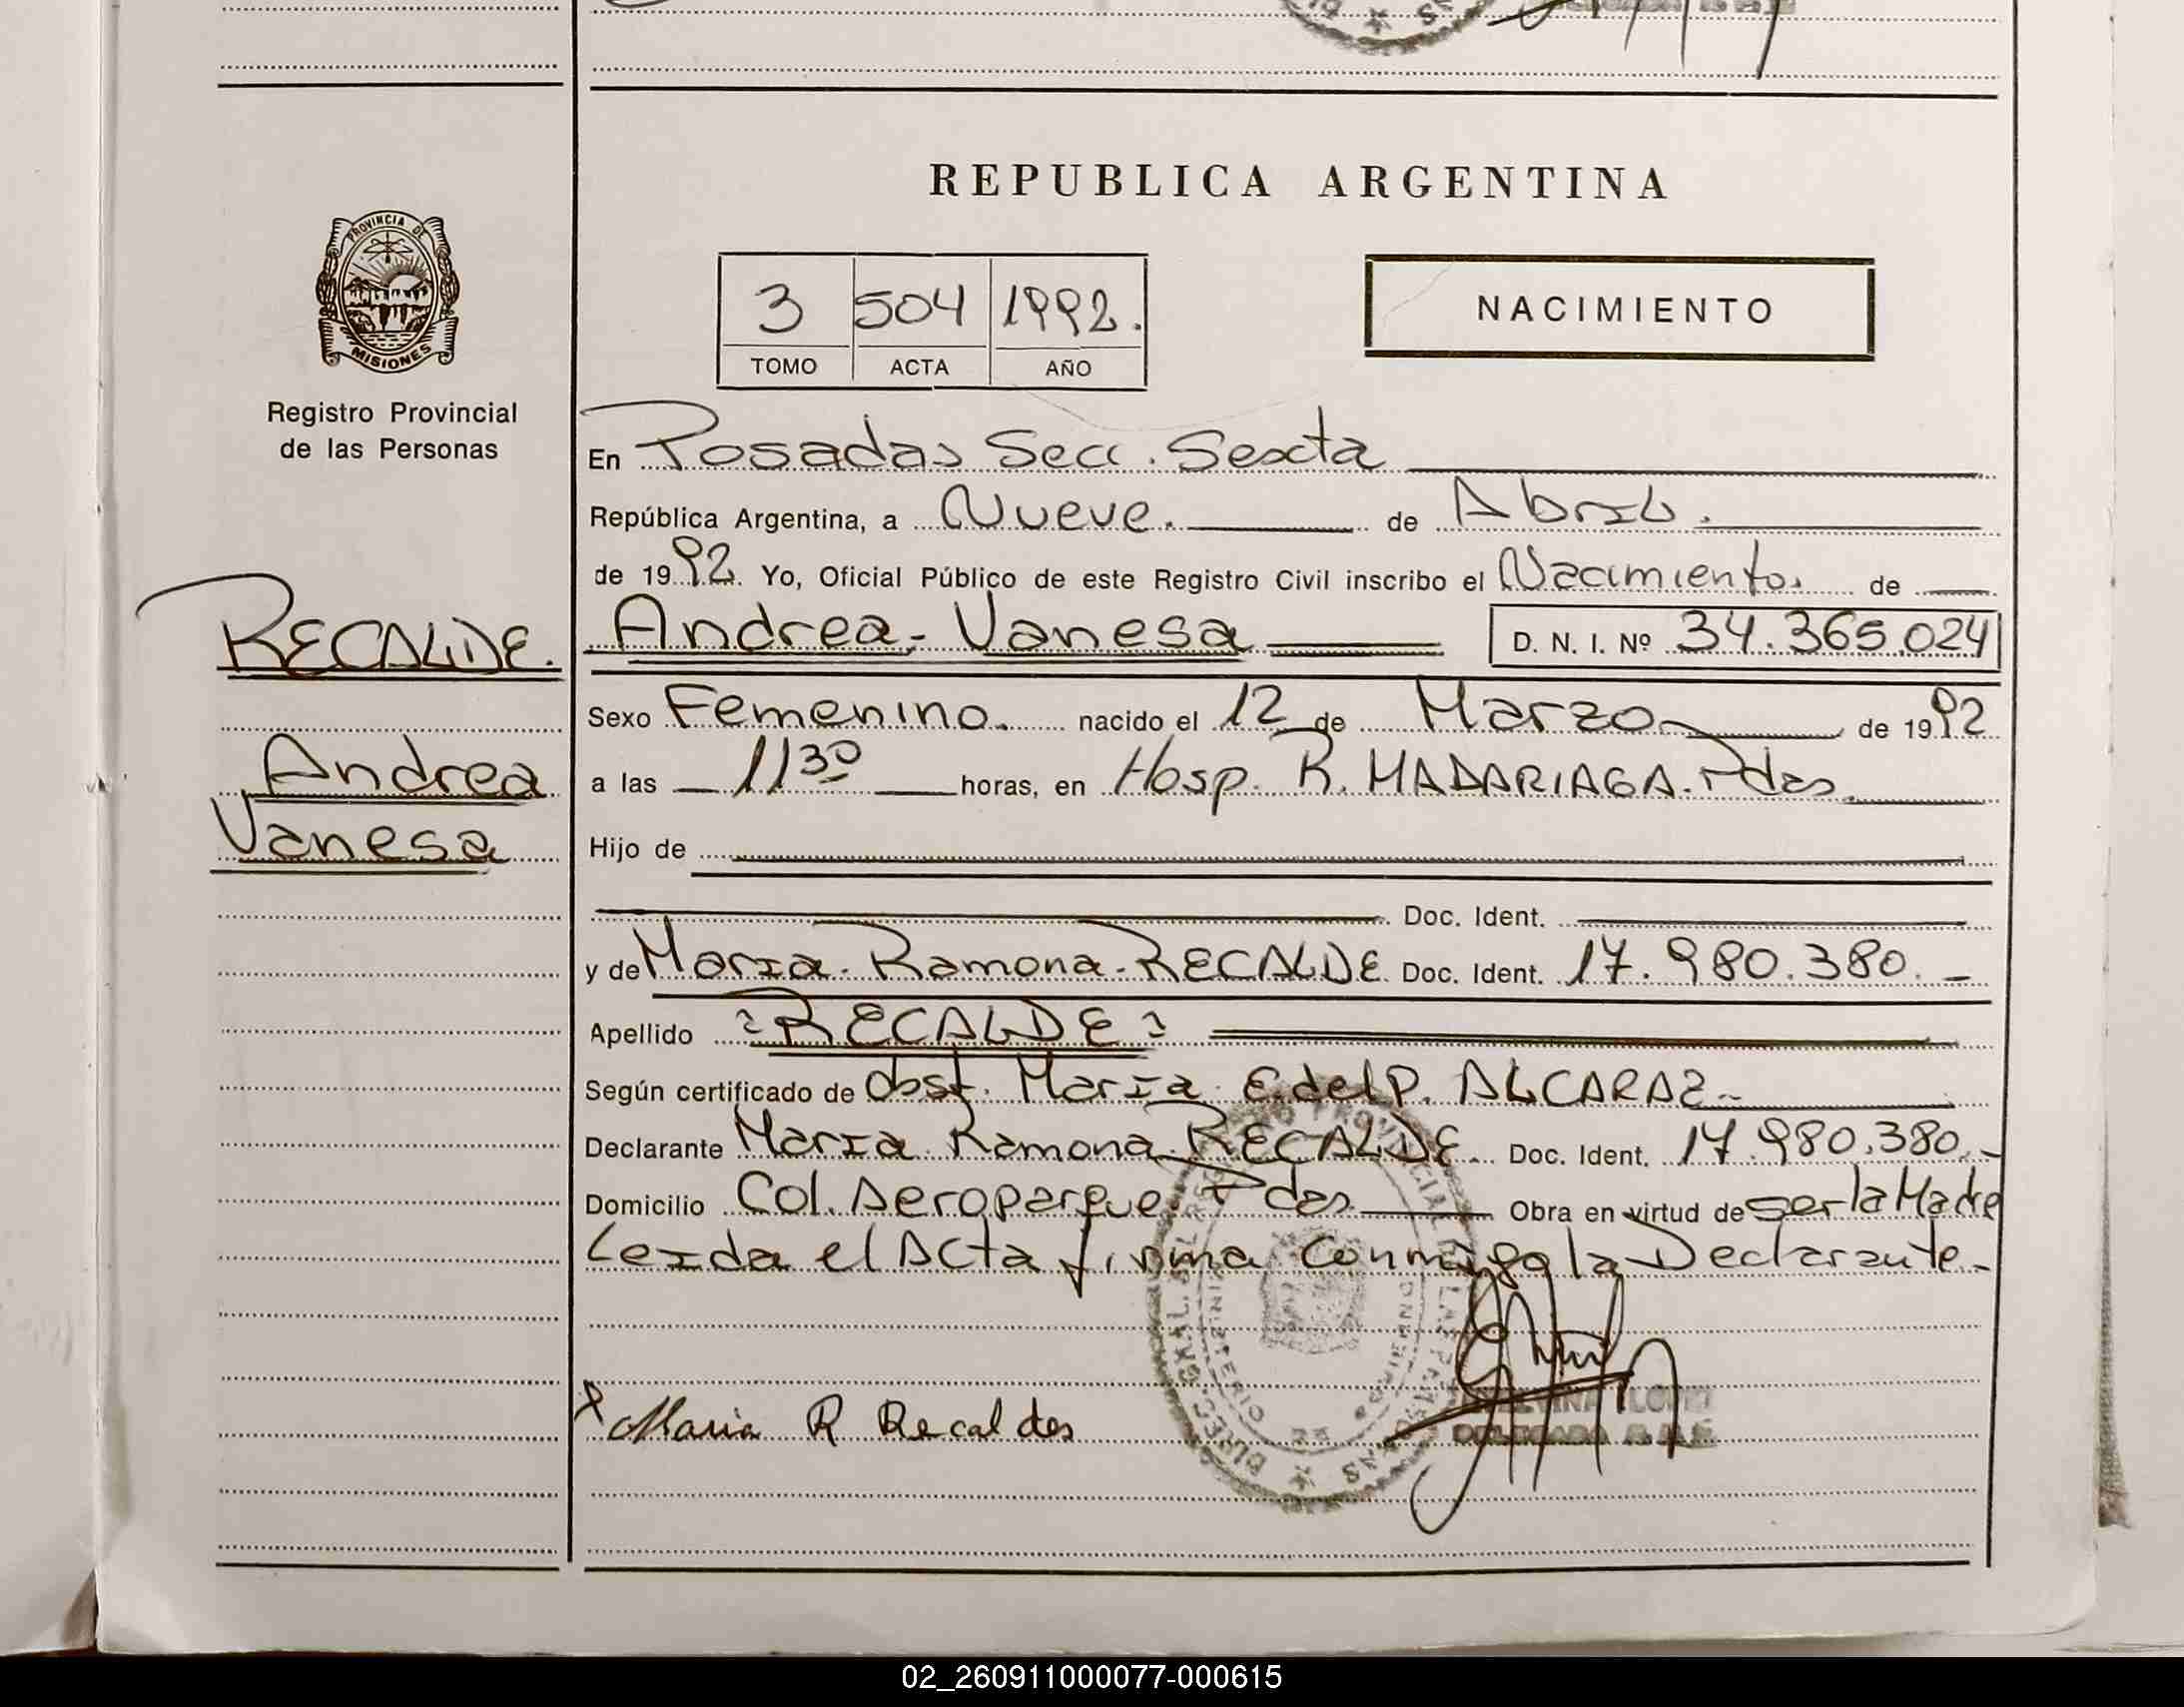 REPUBLICA ARGENTINA
PROVINCIA DE
MISIONES
Registro Provincial
de las Personas
3 504 1992.
TOMO ACTA AÑO
NACIMIENTO
En Posadas Secc. Sexta
República Argentina, a Nueve. de Abril.
de 1992. Yo, Oficial Público de este Registro Civil inscribo el Nacimiento. de
RECALDE.
Andrea
Vanesa
Andrea - Vanesa D. N. I. Nº 34.365.024
Sexo Femenino. nacido el 12 de Marzo de 1992
a las 11 30 horas, en Hosp. R. MADARIAGA. Pdas.
Hijo de
Doc. Ident.
y de Maria - Ramona - RECALDE Doc. Ident. 17.980.380. -
Apellido "RECALDE"
Según certificado de Obst. Maria E. del P. ALCARAZ -
Declarante Maria Ramona RECALDE Doc. Ident. 17.980.380. -
Domicilio Col. Aeroparque Pdas. Obra en virtud de ser la Madre
Leida el Acta firma conmigo la Declarante -
x Maria R Recaldes
DELEGADA
02_260911000077-000615